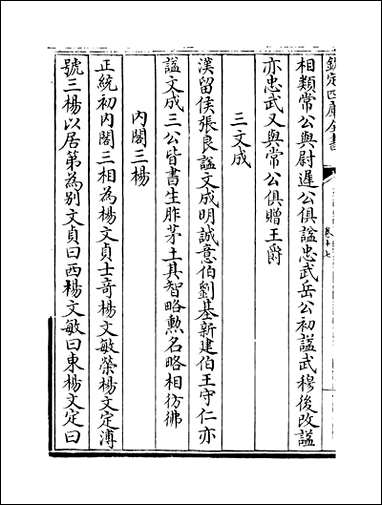 欽定四庫全書
相類常公與尉遲公俱諡忠武岳公初諡武穆後改諡
亦忠武又與常公俱贈王爵
三文成
漢留侯張良諡文成明誠意伯劉基新建伯王守仁亦
諡文成三公皆書生胙茅土其智略勲名略相彷彿
内閣三楊
正統初内閣三相為楊文貞士奇楊文敏榮楊文定溥
號三楊以居第為别文貞曰西楊文敏曰東楊文定曰